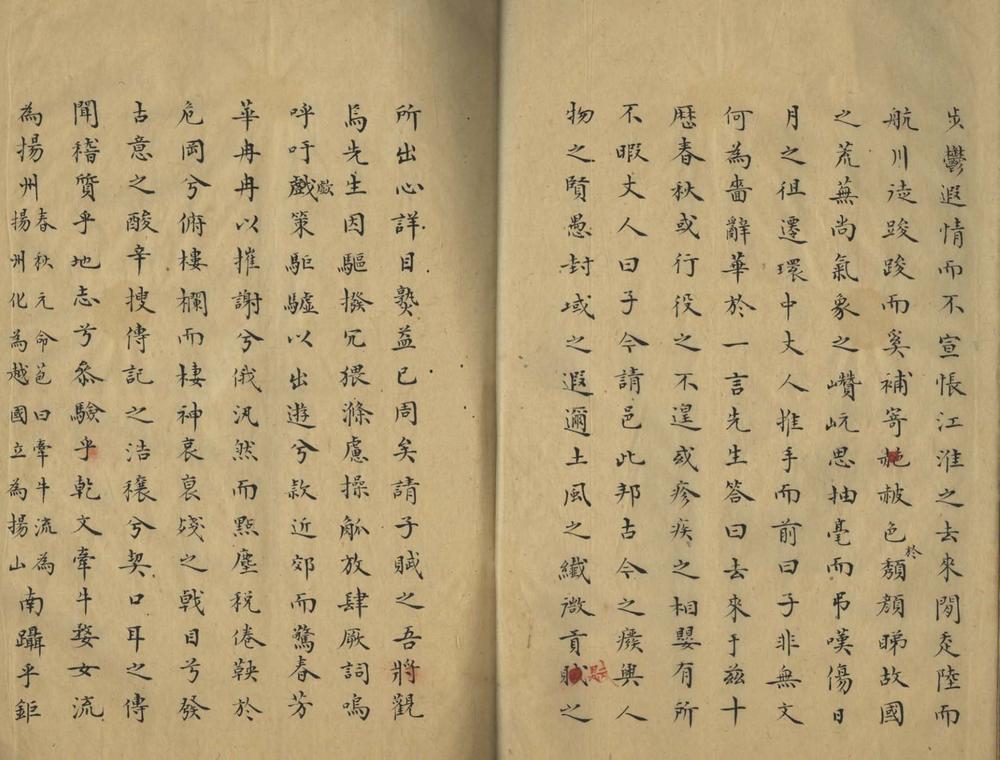 步鬱遐情而不宣悵江淮之去來閒走陸而
航川徒踆踆而奚補寄赦色於頽顏睇故國
之荒蕪尚氣象之巑岏思抽毫而弔嘆傷日
月之徂遷環中丈人推手而前曰子非無文
何為嗇辭華於一言先生答曰去來于茲十
歷春秋或行役之不遑或疹疾之相嬰有所
不暇丈人曰子今請邑此邦古今之癈興人
物之賢愚封域之遐邇土風之纖微貢賦之
所出心詳目熟益已周矣請子賦之吾將觀
焉先生因驅撥冗猥滌慮操觚放肆厥詞嗚
呼吁戲歔策駏驉以出遊兮款近郊而驚春芳
華冉冉以摧謝兮俄汎然而點塵稅倦鞅於
危岡兮俯樓欄而棲神哀裒殘之戟目兮發
古意之酸辛搜傳記之浩穰兮契口耳之傳
聞稽質乎地志兮叅驗乎乾文牽牛婺女流
為揚州春秋元命苞曰牽牛流為揚州化為越國立為揚山南躡乎鉅